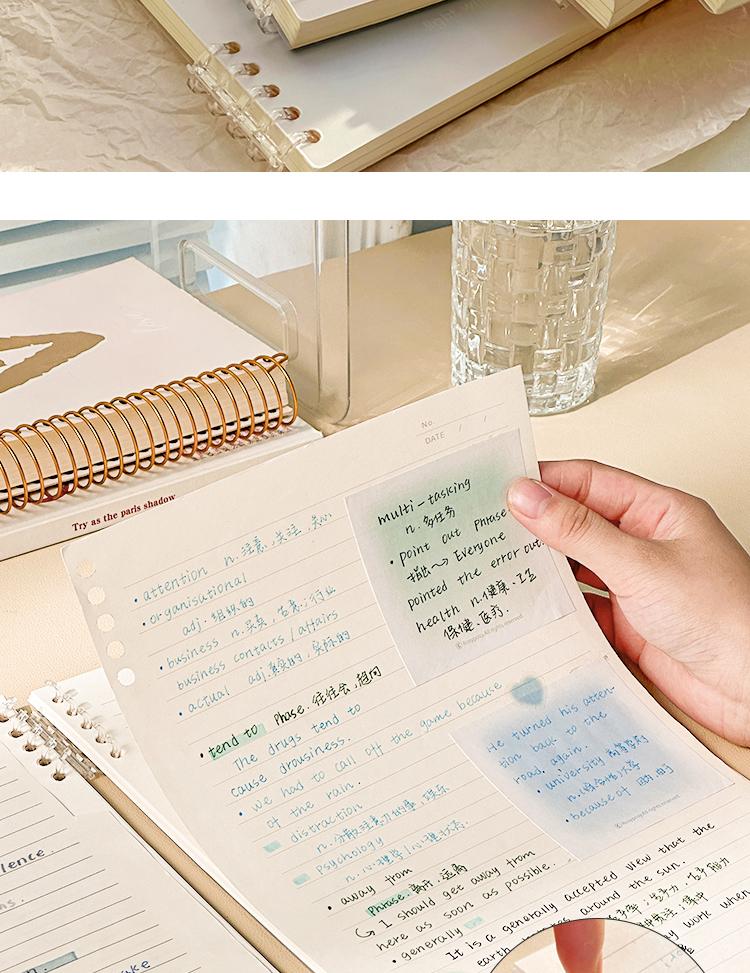 Try as the paris shadow
No.
DATE / /
• attention n. 注意,关注,关心
• organisational
adj. 组织的
• business n.
business contacts / affairs
• actual adj. 真实的,实际的
• tend to Phase. 往往会,趋向
The drugs tend to
cause drowsiness.
• We had to call off the game because
of the rain.
distraction
n. 分散注意力的事,娱乐
psychology
n. 心理学/心理状态
• away from
Phrase. 离开,远离
I should get away from
here as soon as possible.
• generally
It is a generally accepted view that the
earth around the sun.
work when
multi-tasking
n. 多任务
• point out phrase
指出 Everyone
pointed the error out.
health n.健康.卫生
保健.医疗.
All rights reserved
He turned his atten-
tion back to the
road, again.
• university
n.(综合性)大学
• because of 因为
All rights reserved
lence.
ns.
ake